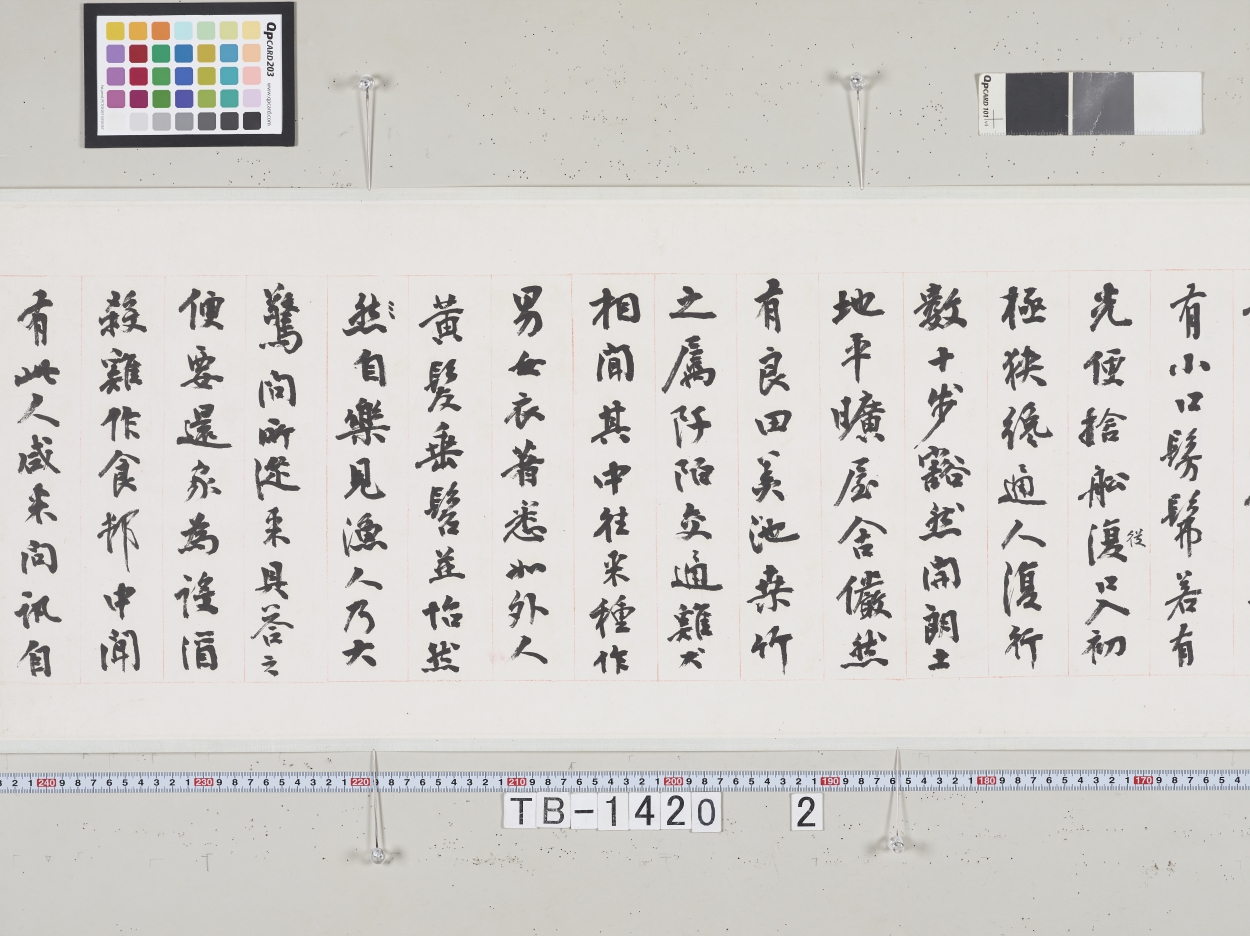 有小口髣髴若有
光便捨船復從口入初
極狹纔通人復行
數十步豁然開朗土
地平曠屋舍儼然
有良田美池桑竹
之屬阡陌交通雞犬
相聞其中往來種作
男女衣著悉如外人
黃髮垂髫並怡然
然自樂見漁人乃大
驚問所從來具答之
便要還家為設酒
殺雞作食邨中聞
有此人咸來問訊自
QPCARD 203
www.qpcard.com
QPCARD 101
TB-1420 2